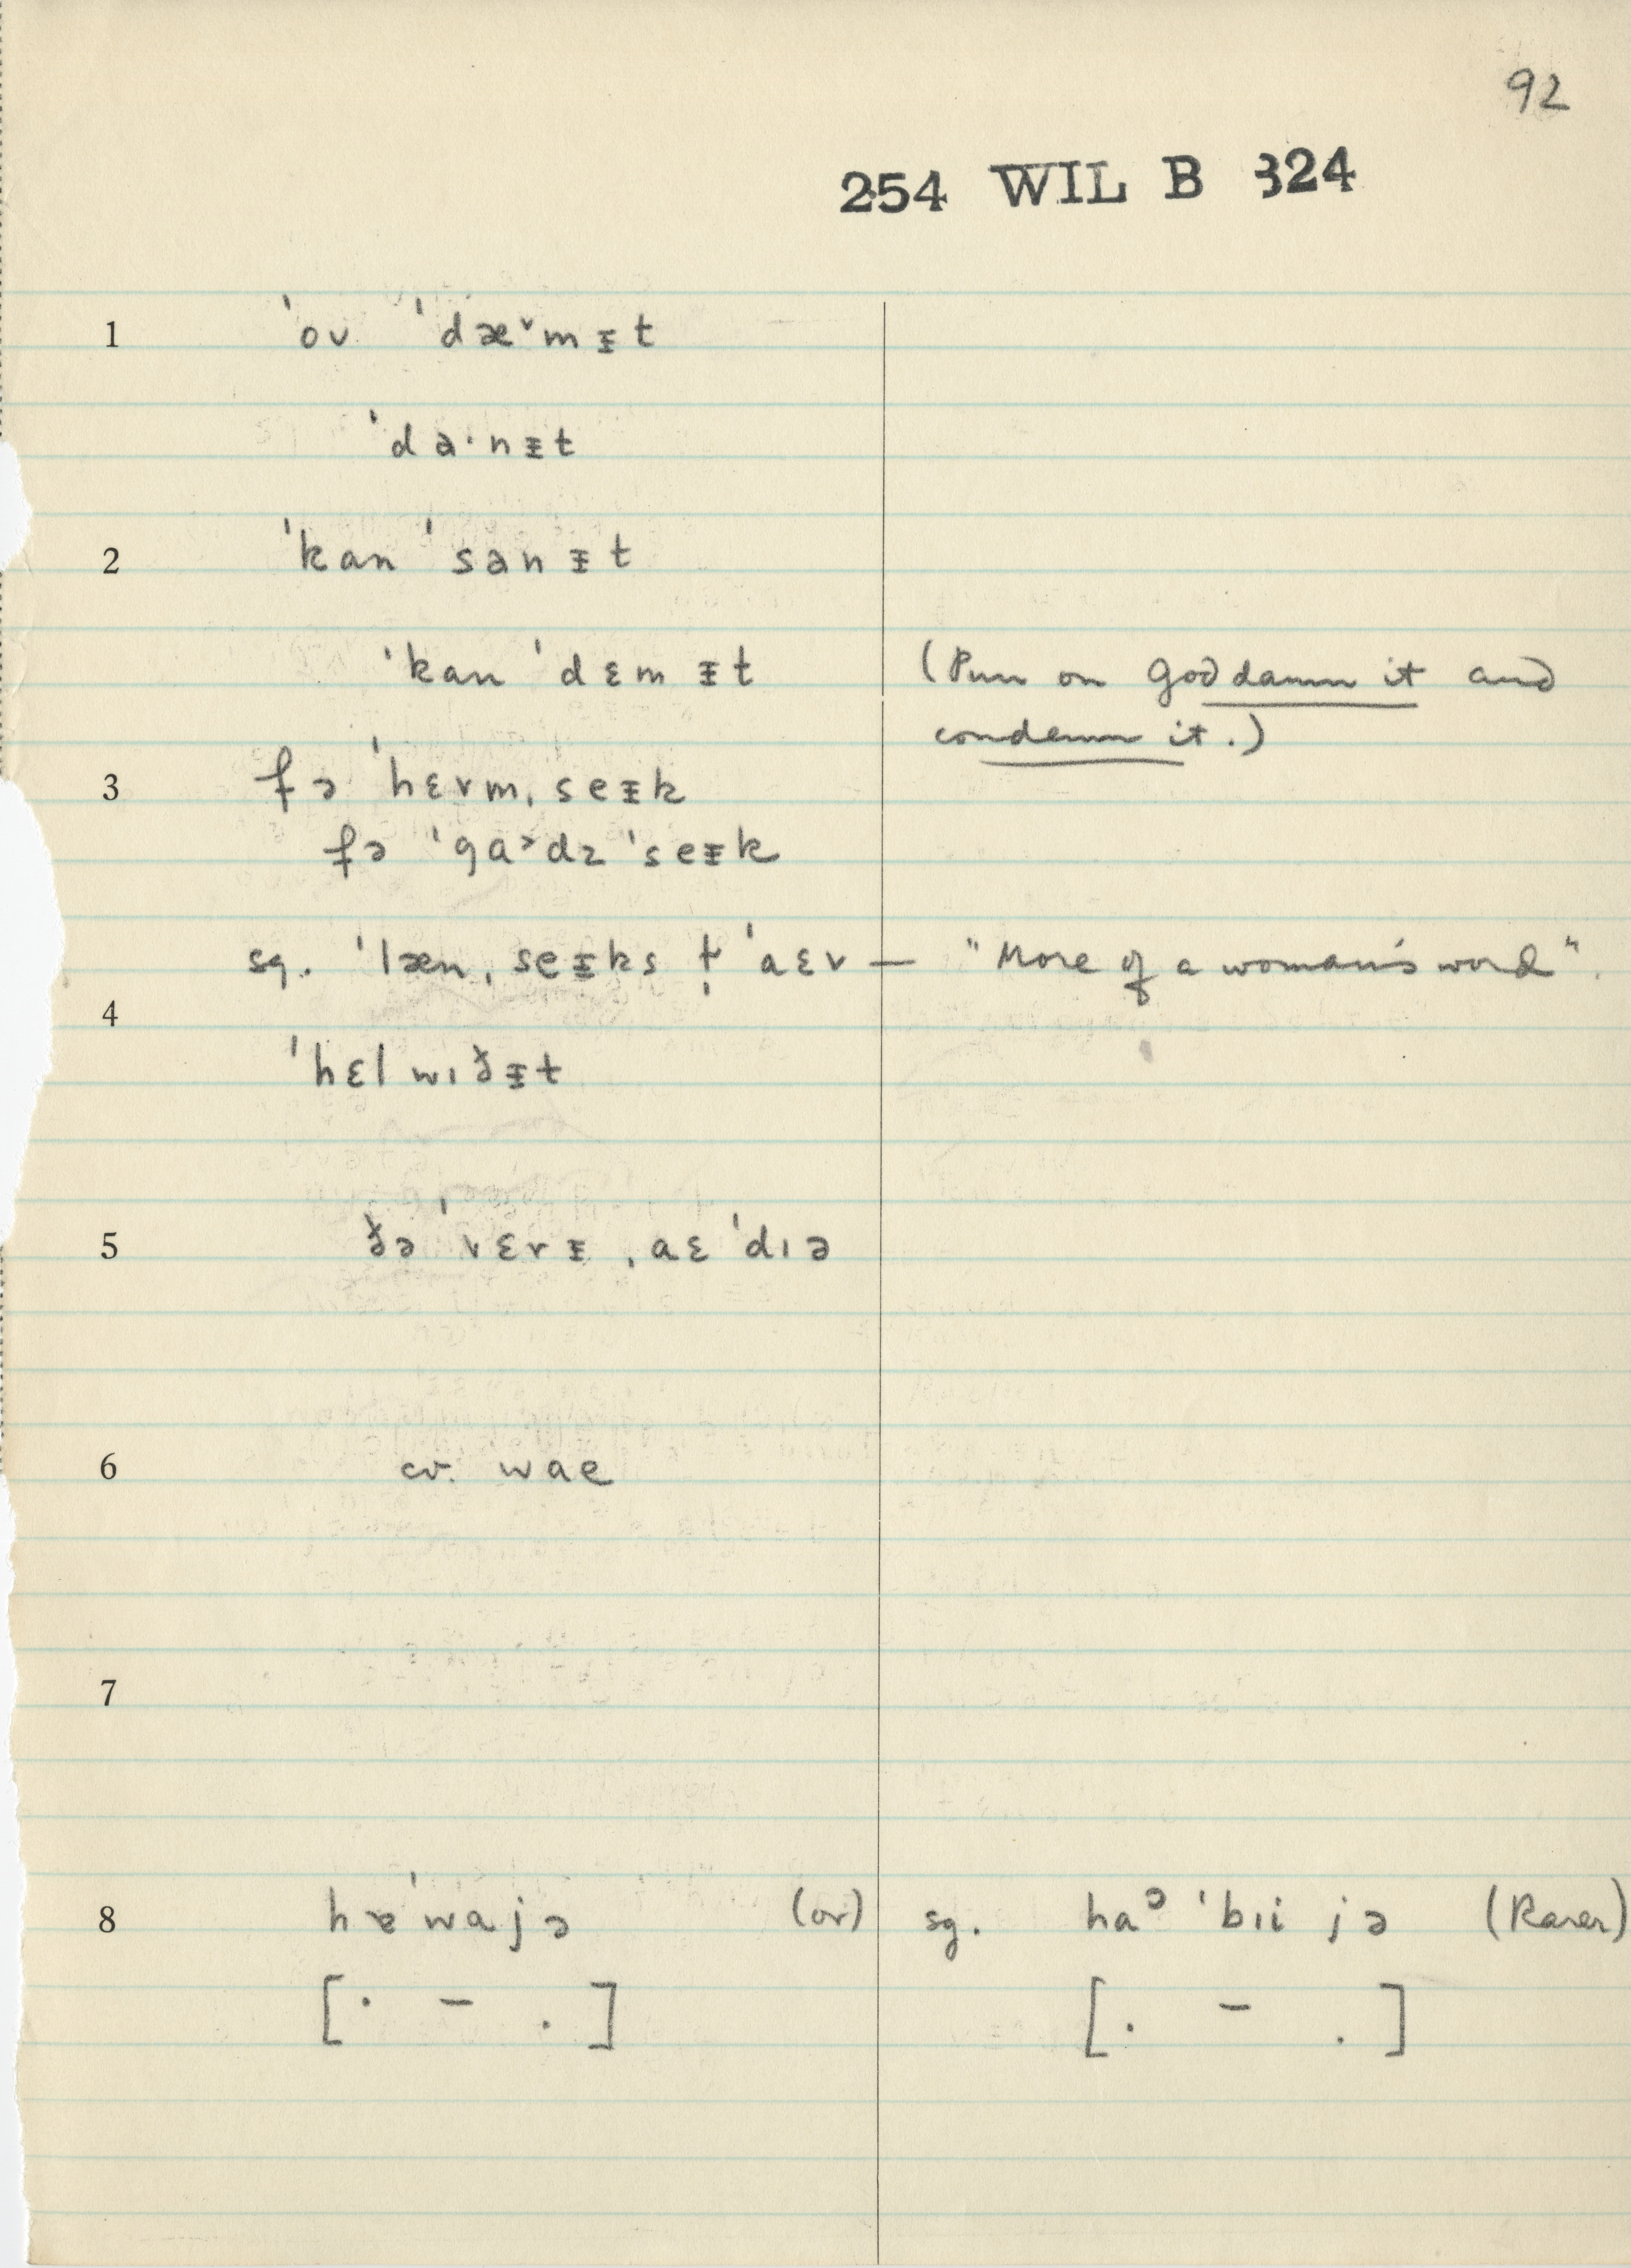 92
254 WIL B 324
1 ˈoʊ ˈdæ˅mɪ̵t
ˈda·nɪ̵t
2 ˈkan ˈsanɪ̵t
ˈkan ˈdɛmɪ̵t (Pun on God damn it and
condemn it.)
3 fə ˈhɛvm, seɪ̵k
fə ˈga˃dz ˈseɪ̵k
sg. ˈlæn, seɪ̵ks t̬ ˈaɛv — "More of a woman's word".
4
ˈhɛl wɪðɪ̵t
5 ðə ˈvɛrɪ̵ ˌaɛ ˈdɪə
6 cv. wae
7
8 hɐˈwajə (or) sg. haᵊ ˈbɪi jə (Rarer)
[· – .] [. – .]